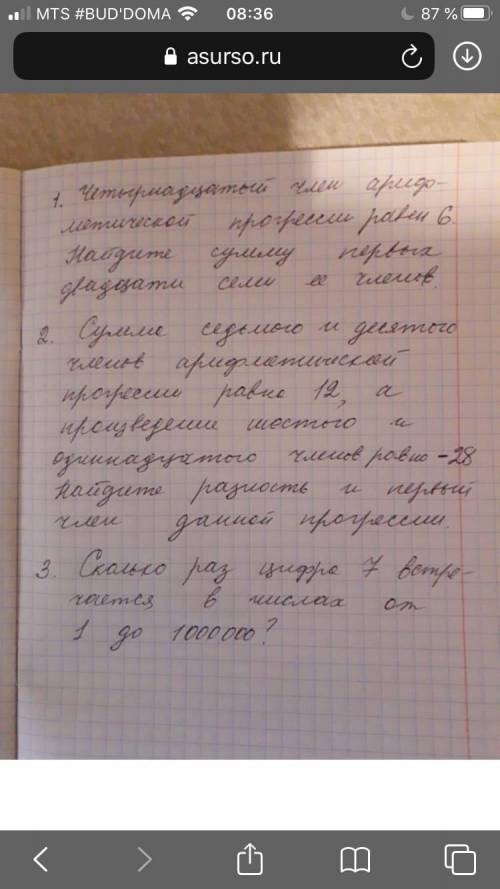 MTS #BUD'DOMA 08:36 87 %
asursо.ru
1. Четырнадцатый член ариф-
метической прогрессии равен 6.
Найдите сумму первых
двадцати семи ее членов.
2. Сумма седьмого и десятого
членов арифметической
прогрессии равна 12, а
произведение шестого и
одиннадцатого членов равно -28
Найдите разность и первый
член данной прогрессии.
3. Сколько раз цифра 7 встре-
чается в числах от
1 до 1000000?